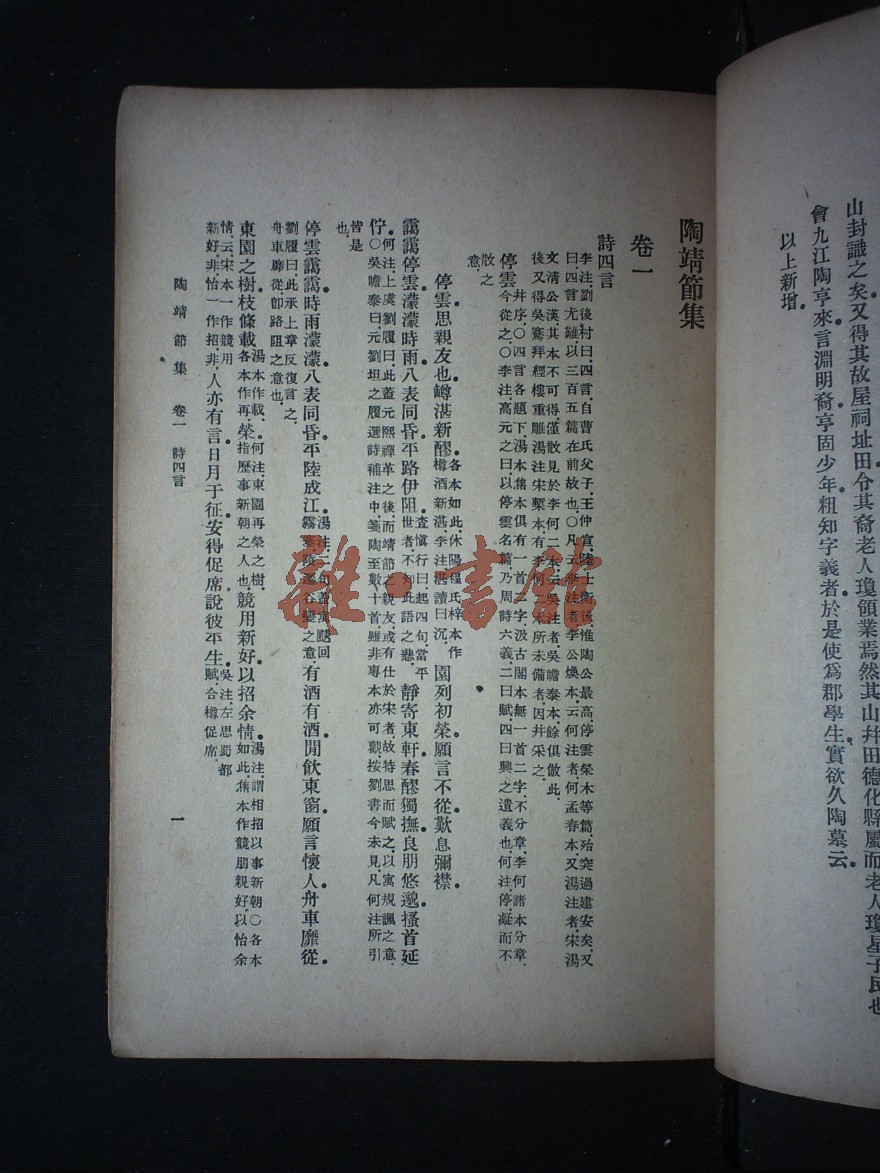 山封識之矣又得其故屋祠址田令其裔老人瓊領業焉然其山幷田德化縣屬而老人瓊星子民也
會九江陶亨來言淵明裔亨固少年粗知字義者於是使爲郡學生實欲久陶墓云
以上新增
陶靖節集
卷一
詩四言
李注劉後村曰四言自曹氏父子王仲宣陸士衡後惟陶公最高停雲榮木等篇殆突過建安矣又
曰四言尤難以三百五篇在前故也○凡云李注者李公煥本云何注者何孟春本又湯注者宋湯
文清公漢其本不可得僅散見於李何二本云吳注者吳瞻泰本餘俱倣此
後又得吳騫拜經樓重雕湯注宋槧本有李何二本所未備者因幷采之
停雲幷序○四言各題下湯本焦本俱有一首二字汲古閣本無一首二字不分章李何諸本分章
今從之○李注高元之曰以停雲名篇乃周詩六義二曰賦四曰興之遺義也何注停凝而不
散之
意
停雲思親友也罇湛新醪各本如此休陽程氏梓本作
樽酒新湛李注湛讀曰沉園列初榮願言不從歎息彌襟
靄靄停雲濛濛時雨八表同昏平路伊阻查愼行曰起四句當平
世者不知此語之悲靜寄東軒春醪獨撫良朋悠邈搔首延
佇何注上虞劉履曰此蓋元熙禪革之後而靖節之親友或有仕於宋者故特思而賦之以寓規諷之意
○吳瞻泰曰元劉坦之履選詩補注中箋陶至數十首雖非專本亦可觀按劉書今未見凡何注所引
皆是
也
停雲靄靄時雨濛濛八表同昏平陸成江湯注二句蓋寓飈回
霧塞陵遷谷變之意有酒有酒閒飮東窗願言懷人舟車靡從
劉履曰此承上章反復言之
舟車靡從卽路阻之意也
東園之樹枝條載湯本作載
各本作再榮何注東園再榮之樹
指歷事新朝之人也競用新好以招余情湯注謂相招以事新朝○各本
如此焦本作競朋親好以怡余
情云宋本一作競用
新好非怡一作招非人亦有言日月于征安得促席說彼平生吳注左思蜀都
賦合樽促席
陶靖節集 卷一 詩四言
一
雜·書館